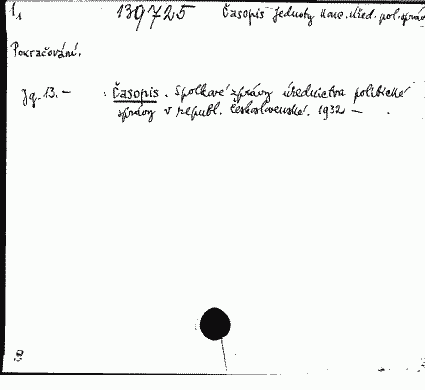 139725 Časopis Jednoty kanc. úřed. pol. správ
Pokračování.
Jg. 13.— Časopis. Spolkové zprávy úřednictva politické
správy v republ. československé. 1932 —